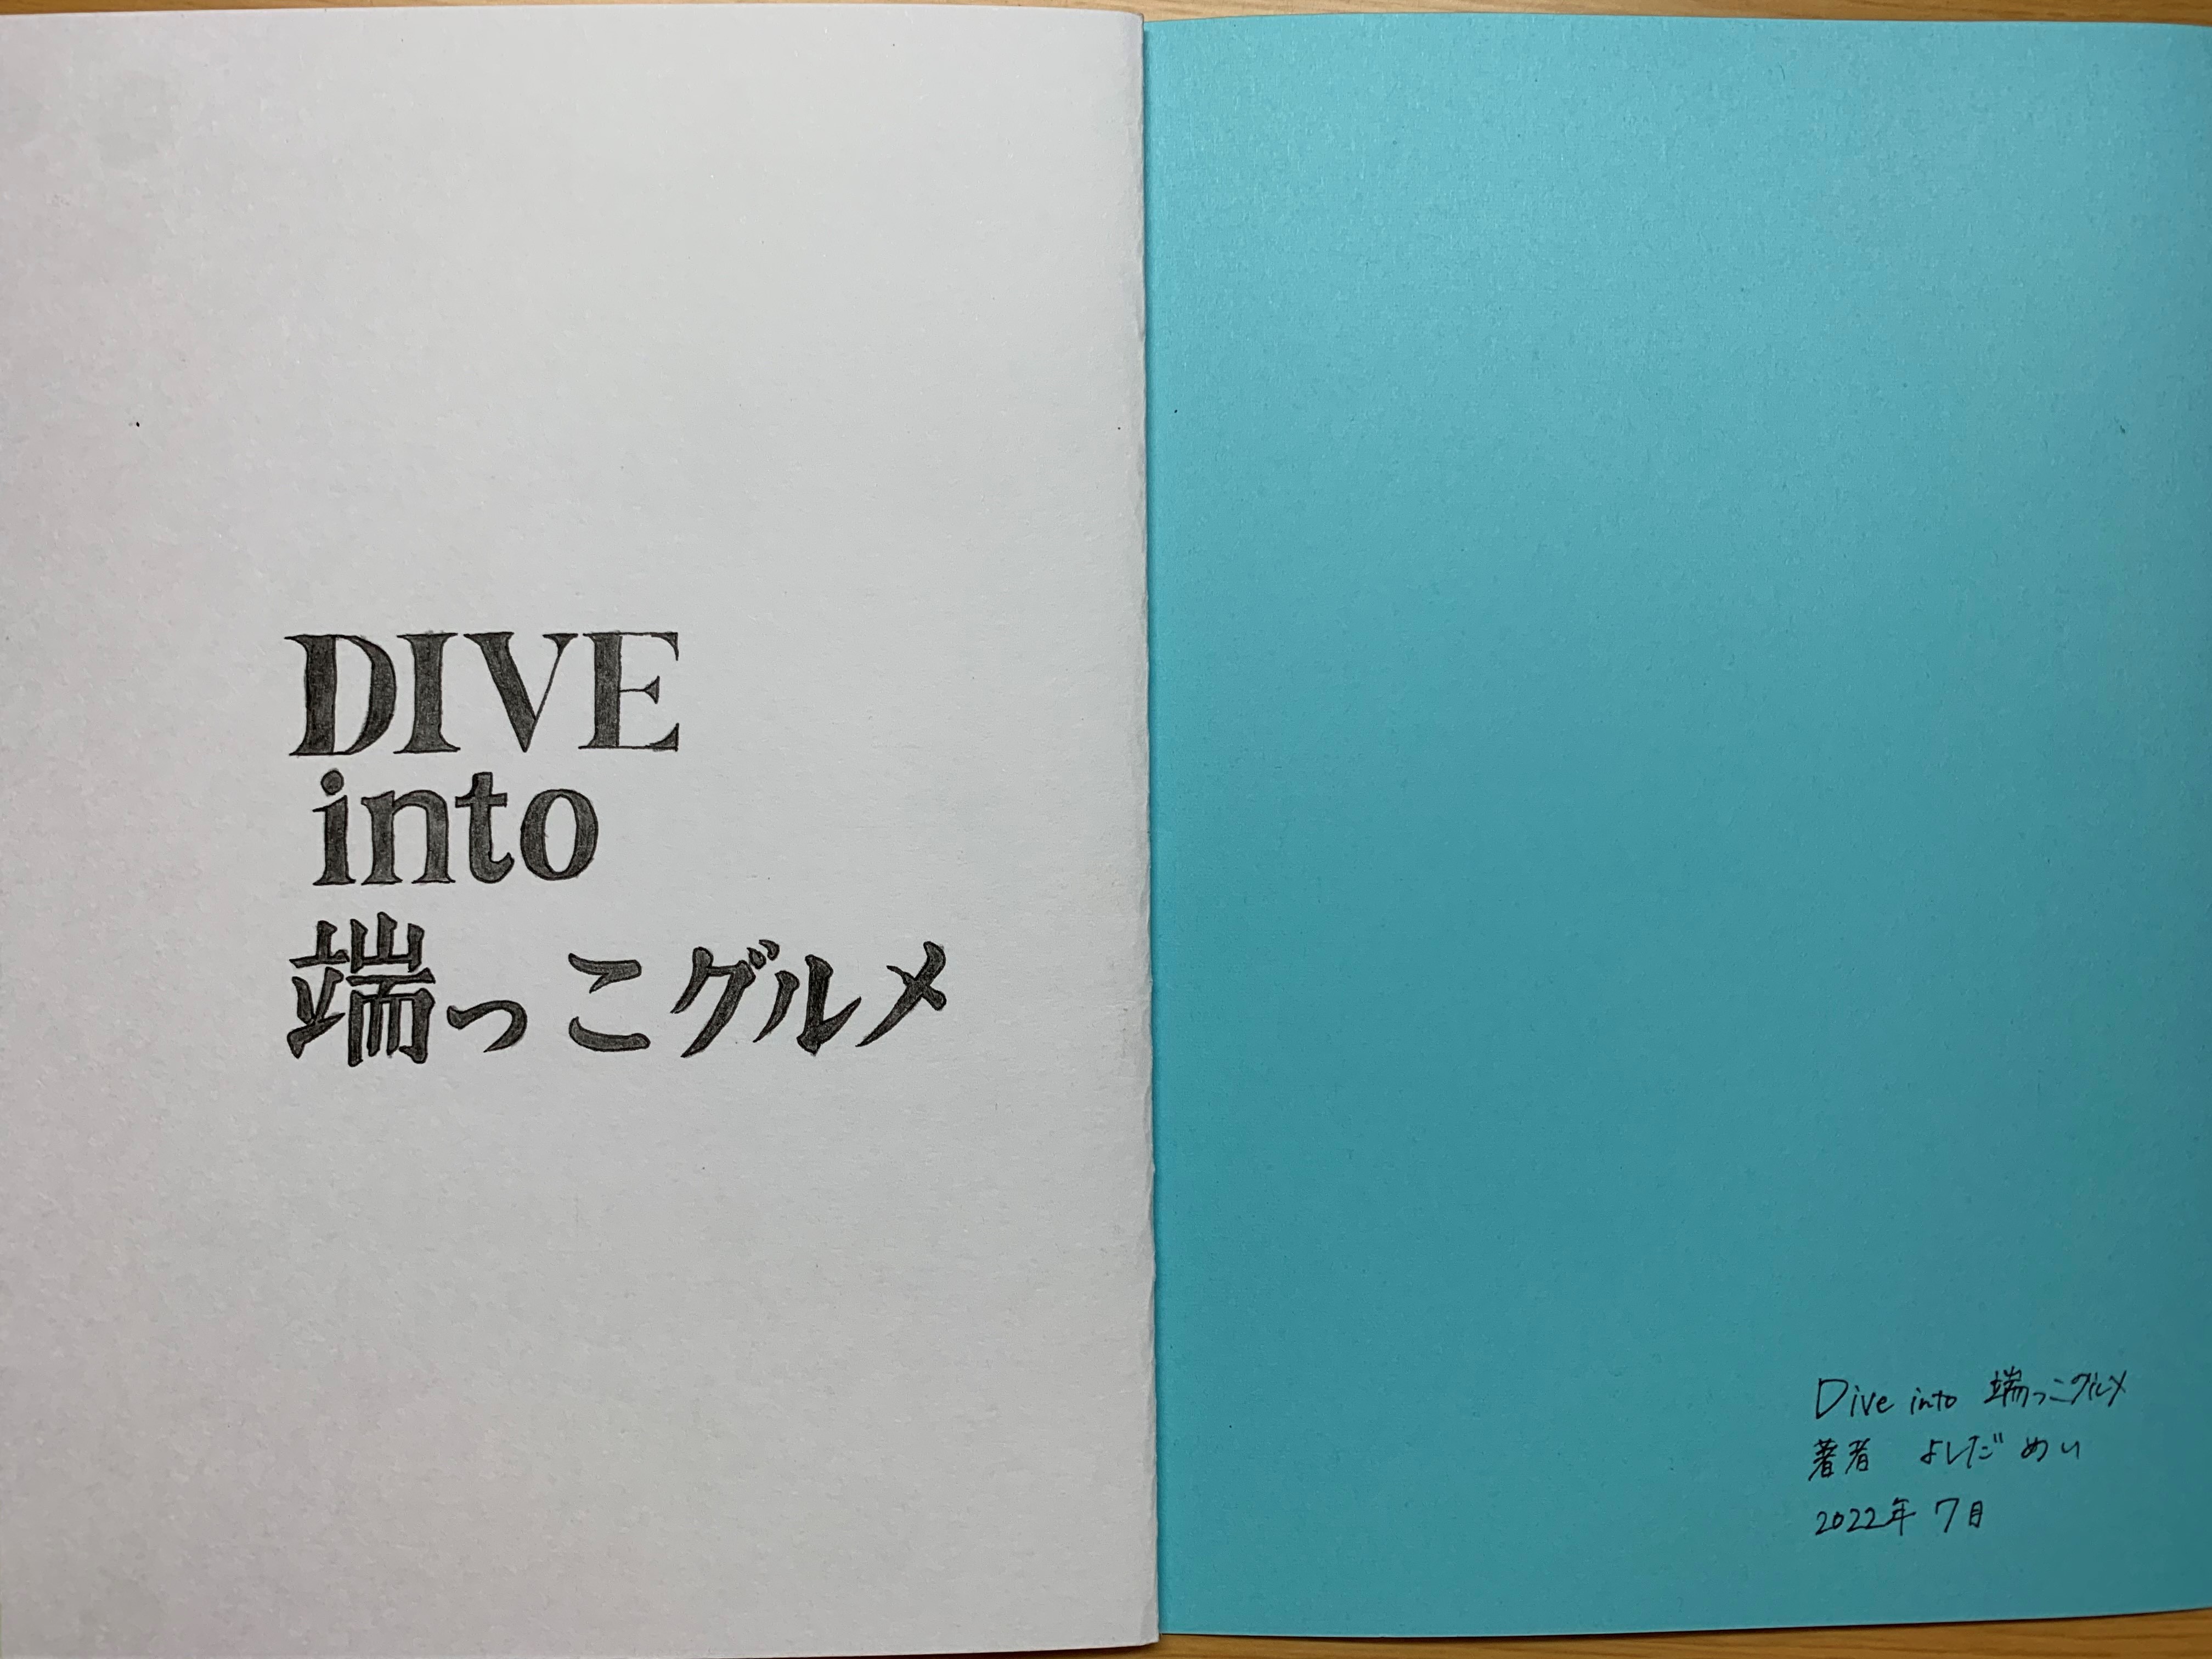 DIVE
into
端っこグルメ
Dive into 端っこグルメ
著者 よしだ めい
2022年 7月